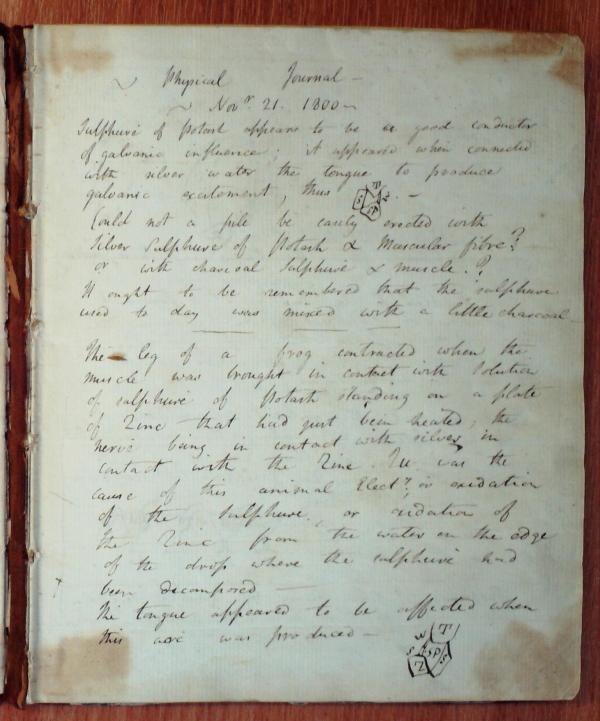 Physical Journal —
Novr. 21. 1800 —
Sulphure of Potash appears to be a good conductor
of galvanic influence; it appeared when connected
with silver water the tongue to produce
galvanic excitement, thus
S T
Could not a pile be easily erected with
Silver Sulphure of Potash & Muscular fibre?
or with charcoal Sulphure & muscle.?
It ought to be remembered that the sulphure
used to day was mixed with a little charcoal
The leg of a frog contracted when the
muscle was brought in contact with Solution
of sulphure of Potash standing on a plate
of Zinc that had just been heated, the
nerve being in contact with silver in
contact with the Zinc. was the
cause of this animal Electy, or oxidation
of the Sulphure, or oxidation of
the Zinc from the water on the edge
of the drop where the sulphure had
been decomposed —
The tongue appeared to be affected when
this was produced —
W T
S SP S
Z